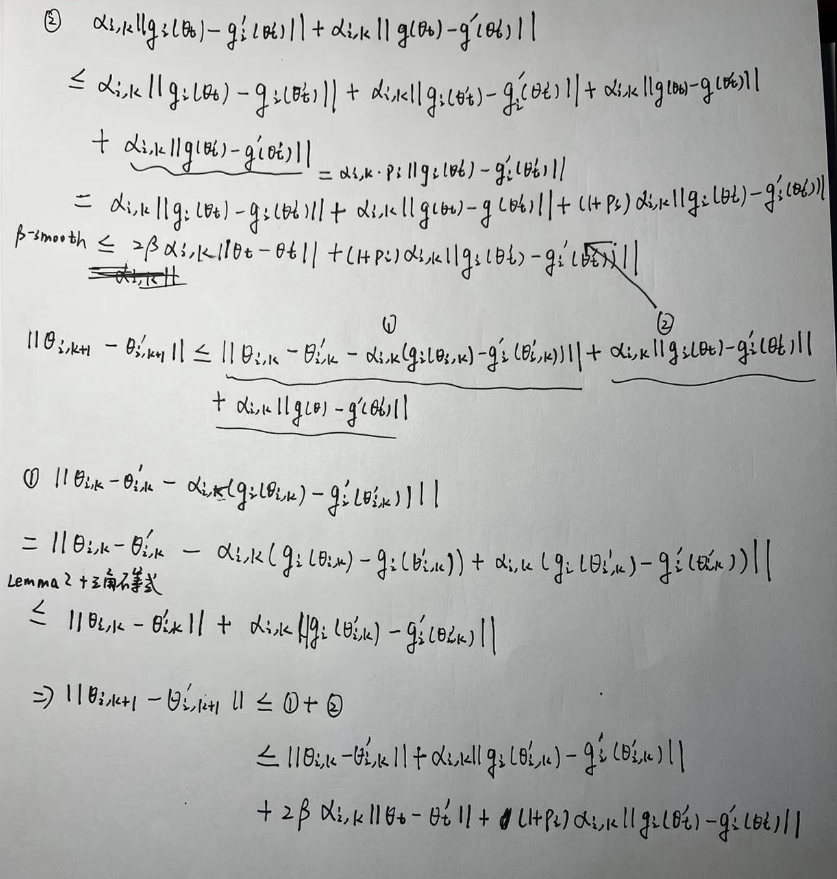 ② α_{i,k}||g_i(θ_t) - g_i'(θ_t')|| + α_{i,k}||g(θ_t) - g'(θ_t')||
≤ α_{i,k}||g_i(θ_t) - g_i(θ_t')|| + α_{i,k}||g_i(θ_t') - g_i'(θ_t')|| + α_{i,k}||g(θ_t) - g(θ_t')||
+ α_{i,k}||g(θ_t') - g'(θ_t')|| = α_{i,k}·p_i||g_i(θ_t') - g_i'(θ_t')||
= α_{i,k}||g_i(θ_t) - g_i(θ_t')|| + α_{i,k}||g(θ_t) - g(θ_t')|| + (1+p_i)α_{i,k}||g_i(θ_t') - g_i'(θ_t')||
β-smooth ≤ 2β α_{i,k}||θ_t - θ_t'|| + (1+p_i)α_{i,k}||g_i(θ_t') - g_i'(θ_t')||
① ②
||θ_{i,k+1} - θ'_{i,k+1}|| ≤ ||θ_{i,k} - θ'_{i,k} - α_{i,k}(g_i(θ_{i,k}) - g_i'(θ'_{i,k}))|| + α_{i,k}||g_i(θ_t) - g_i'(θ_t')||
+ α_{i,k}||g(θ) - g'(θ_t')||
① ||θ_{i,k} - θ'_{i,k} - α_{i,k}(g_i(θ_{i,k}) - g_i'(θ'_{i,k}))||
= ||θ_{i,k} - θ'_{i,k} - α_{i,k}(g_i(θ_{i,k}) - g_i(θ'_{i,k})) + α_{i,k}(g_i(θ'_{i,k}) - g_i'(θ'_{i,k}))||
Lemma 2 + 三角不等式
≤ ||θ_{i,k} - θ'_{i,k}|| + α_{i,k}||g_i(θ'_{i,k}) - g_i'(θ'_{i,k})||
⇒ ||θ_{i,k+1} - θ'_{i,k+1}|| ≤ ① + ②
≤ ||θ_{i,k} - θ'_{i,k}|| + α_{i,k}||g_i(θ'_{i,k}) - g_i'(θ'_{i,k})||
+ 2β α_{i,k}||θ_t - θ_t'|| + (1+p_i)α_{i,k}||g_i(θ_t') - g_i'(θ_t')||